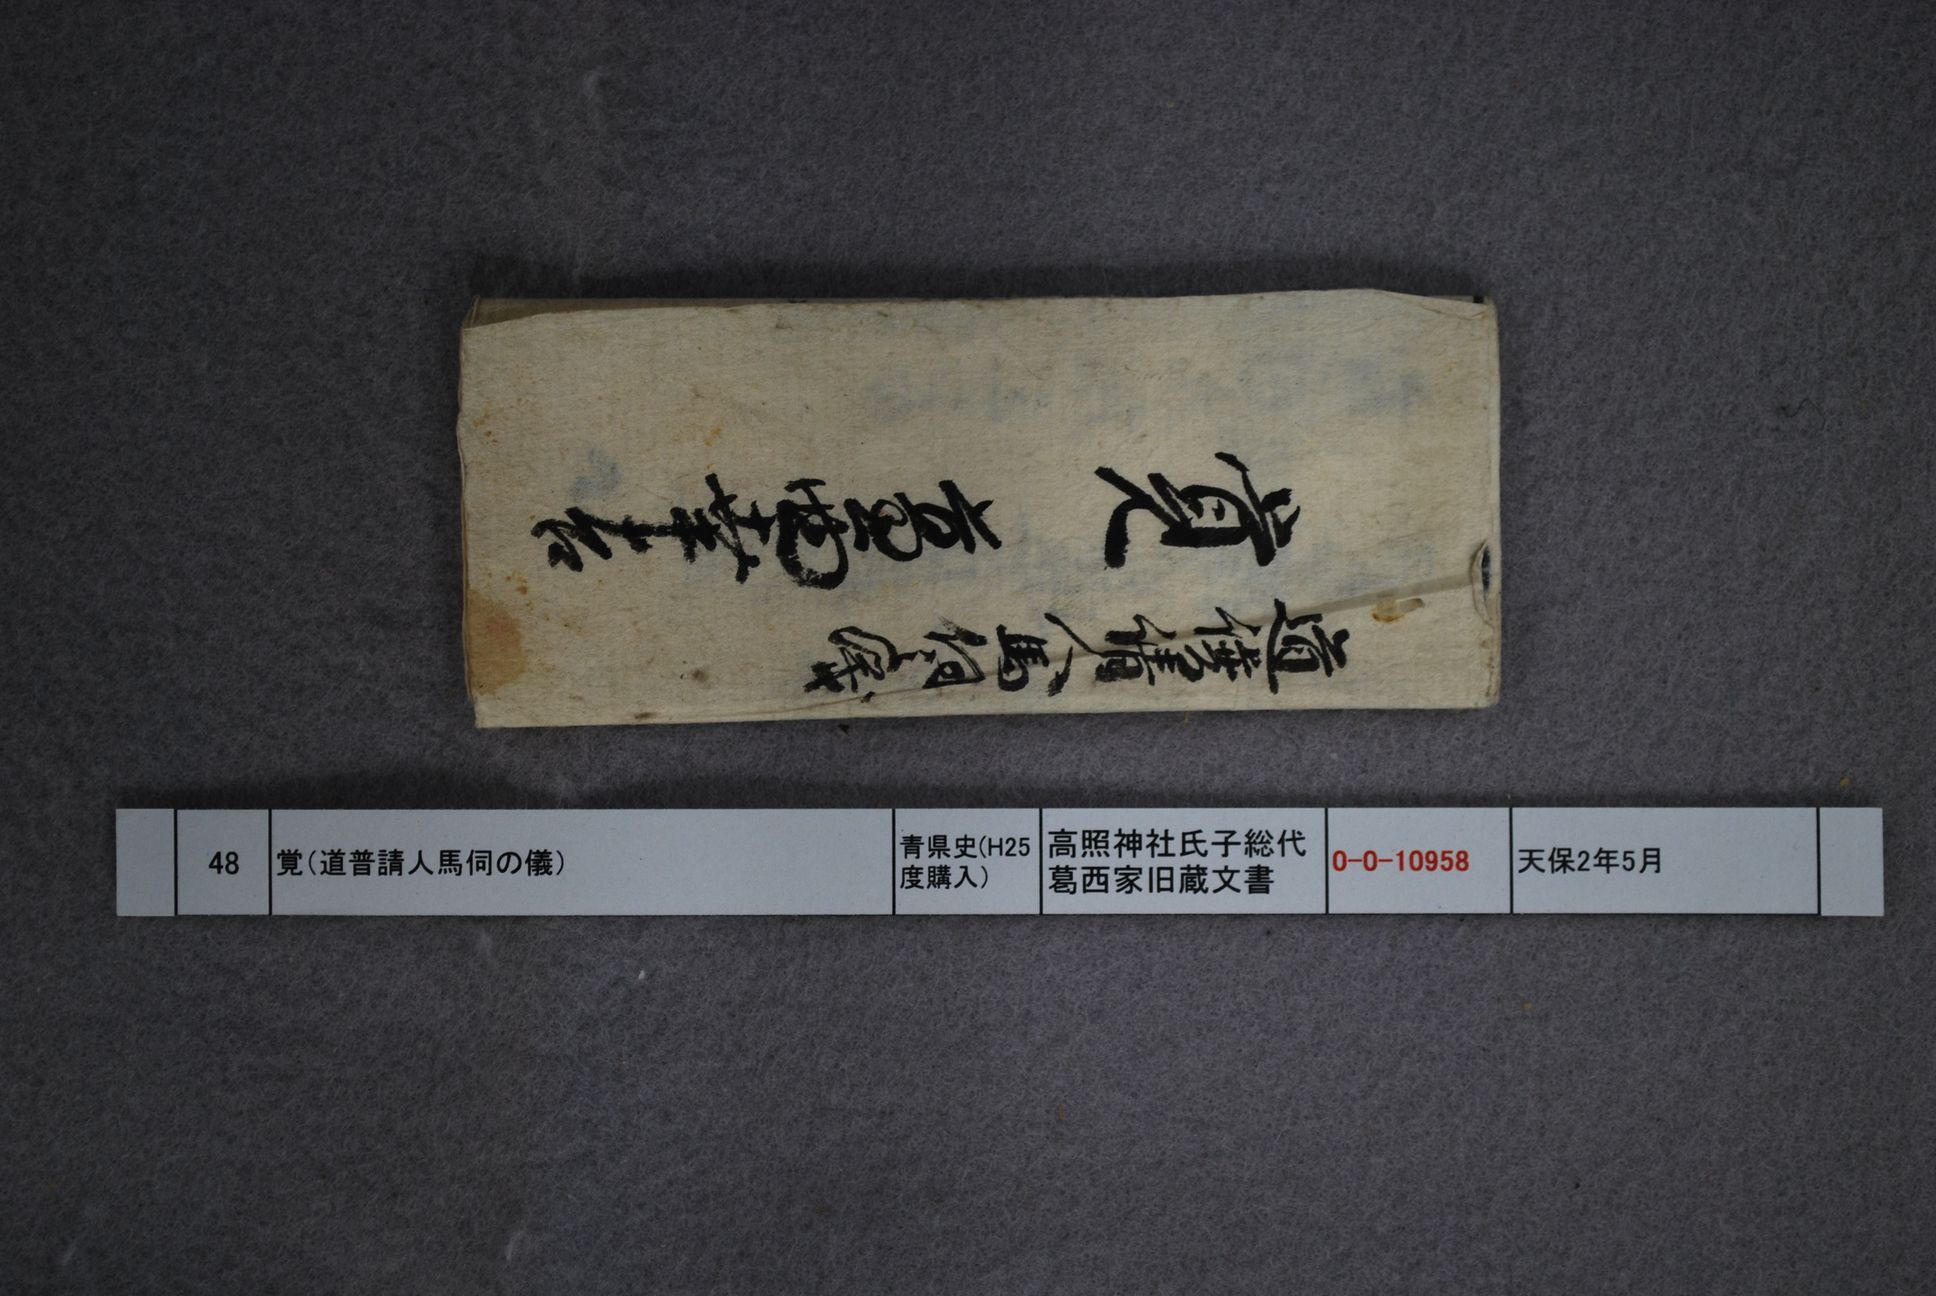 道普請人馬伺之儀
覚
48
覚（道普請人馬伺の儀）
青県史（H25
度購入）
高照神社氏子総代
葛西家旧蔵文書
0-0-10958
天保2年5月